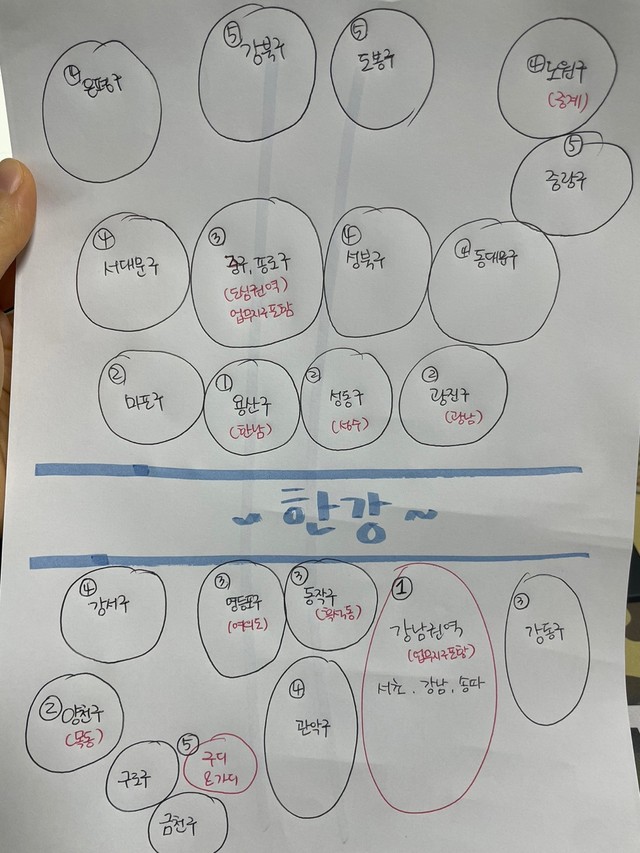 ④ 은평구
⑤ 강북구
⑤ 도봉구
④ 노원구
(중계)
⑤
중랑구
④
서대문구
③
중구, 종로구
(도심권역)
업무지구포함
④
성북구
④ 동대문구
②
마포구
①
용산구
(한남)
②
성동구
(성수)
②
광진구
(광남)
~ 한강 ~
④
강서구
③
영등포구
(여의도)
③
동작구
(흑석동)
①
강남권역
(업무지구포함)
서초, 강남, 송파
③
강동구
② 양천구
(목동)
구로구
⑤
구디
&가디
금천구
④
관악구